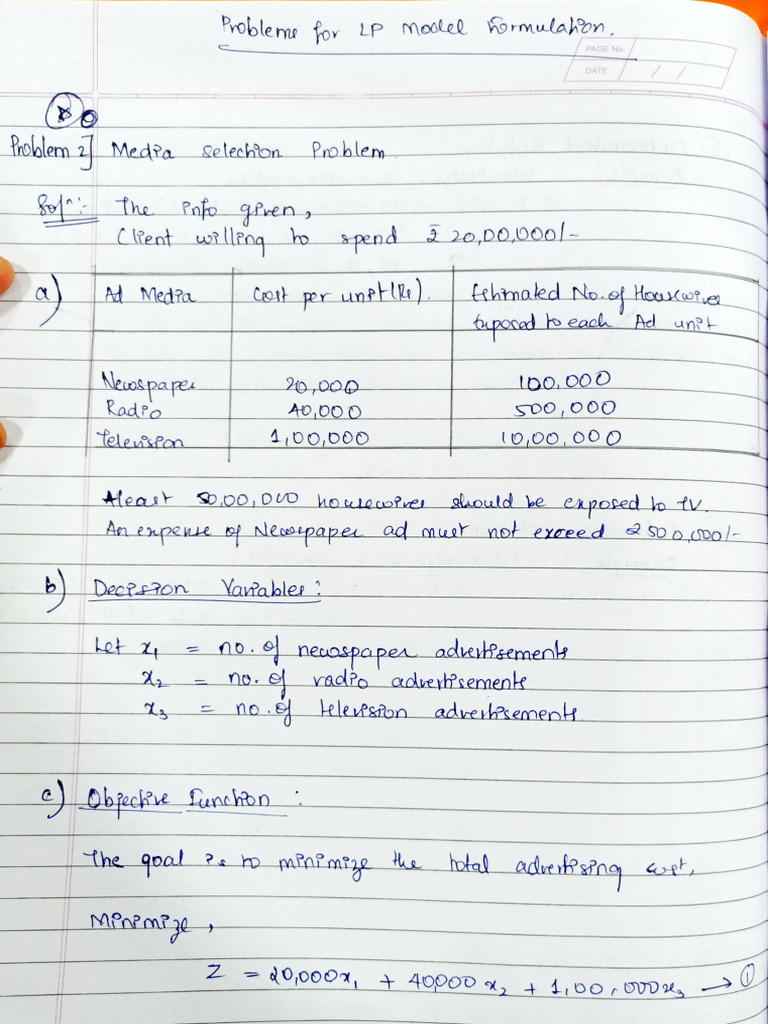 Problems for LP Model Formulation.
PAGE No.
DATE / /
Problem 2] Media Selection Problem
Solⁿ:- The info given,
Client willing to spend ₹ 20,00,000/-
a) Ad Media Cost per unit (Rs). Estimated No. of Housewives
exposed to each Ad unit
Newspaper 20,000 100,000
Radio 40,000 500,000
Television 1,00,000 10,00,000
Atleast 50,00,000 housewives should be exposed to TV.
An expense of Newspaper ad must not exceed ₹ 500,000/-
b) Decision Variables:
Let x₁ = no. of newspaper advertisements
x₂ = no. of radio advertisements
x₃ = no. of television advertisements.
c) Objective Function :
The goal is to minimize the total advertising cost,
Minimize,
Z = 20,000x₁ + 40000x₂ + 1,00,000x₃ → ①